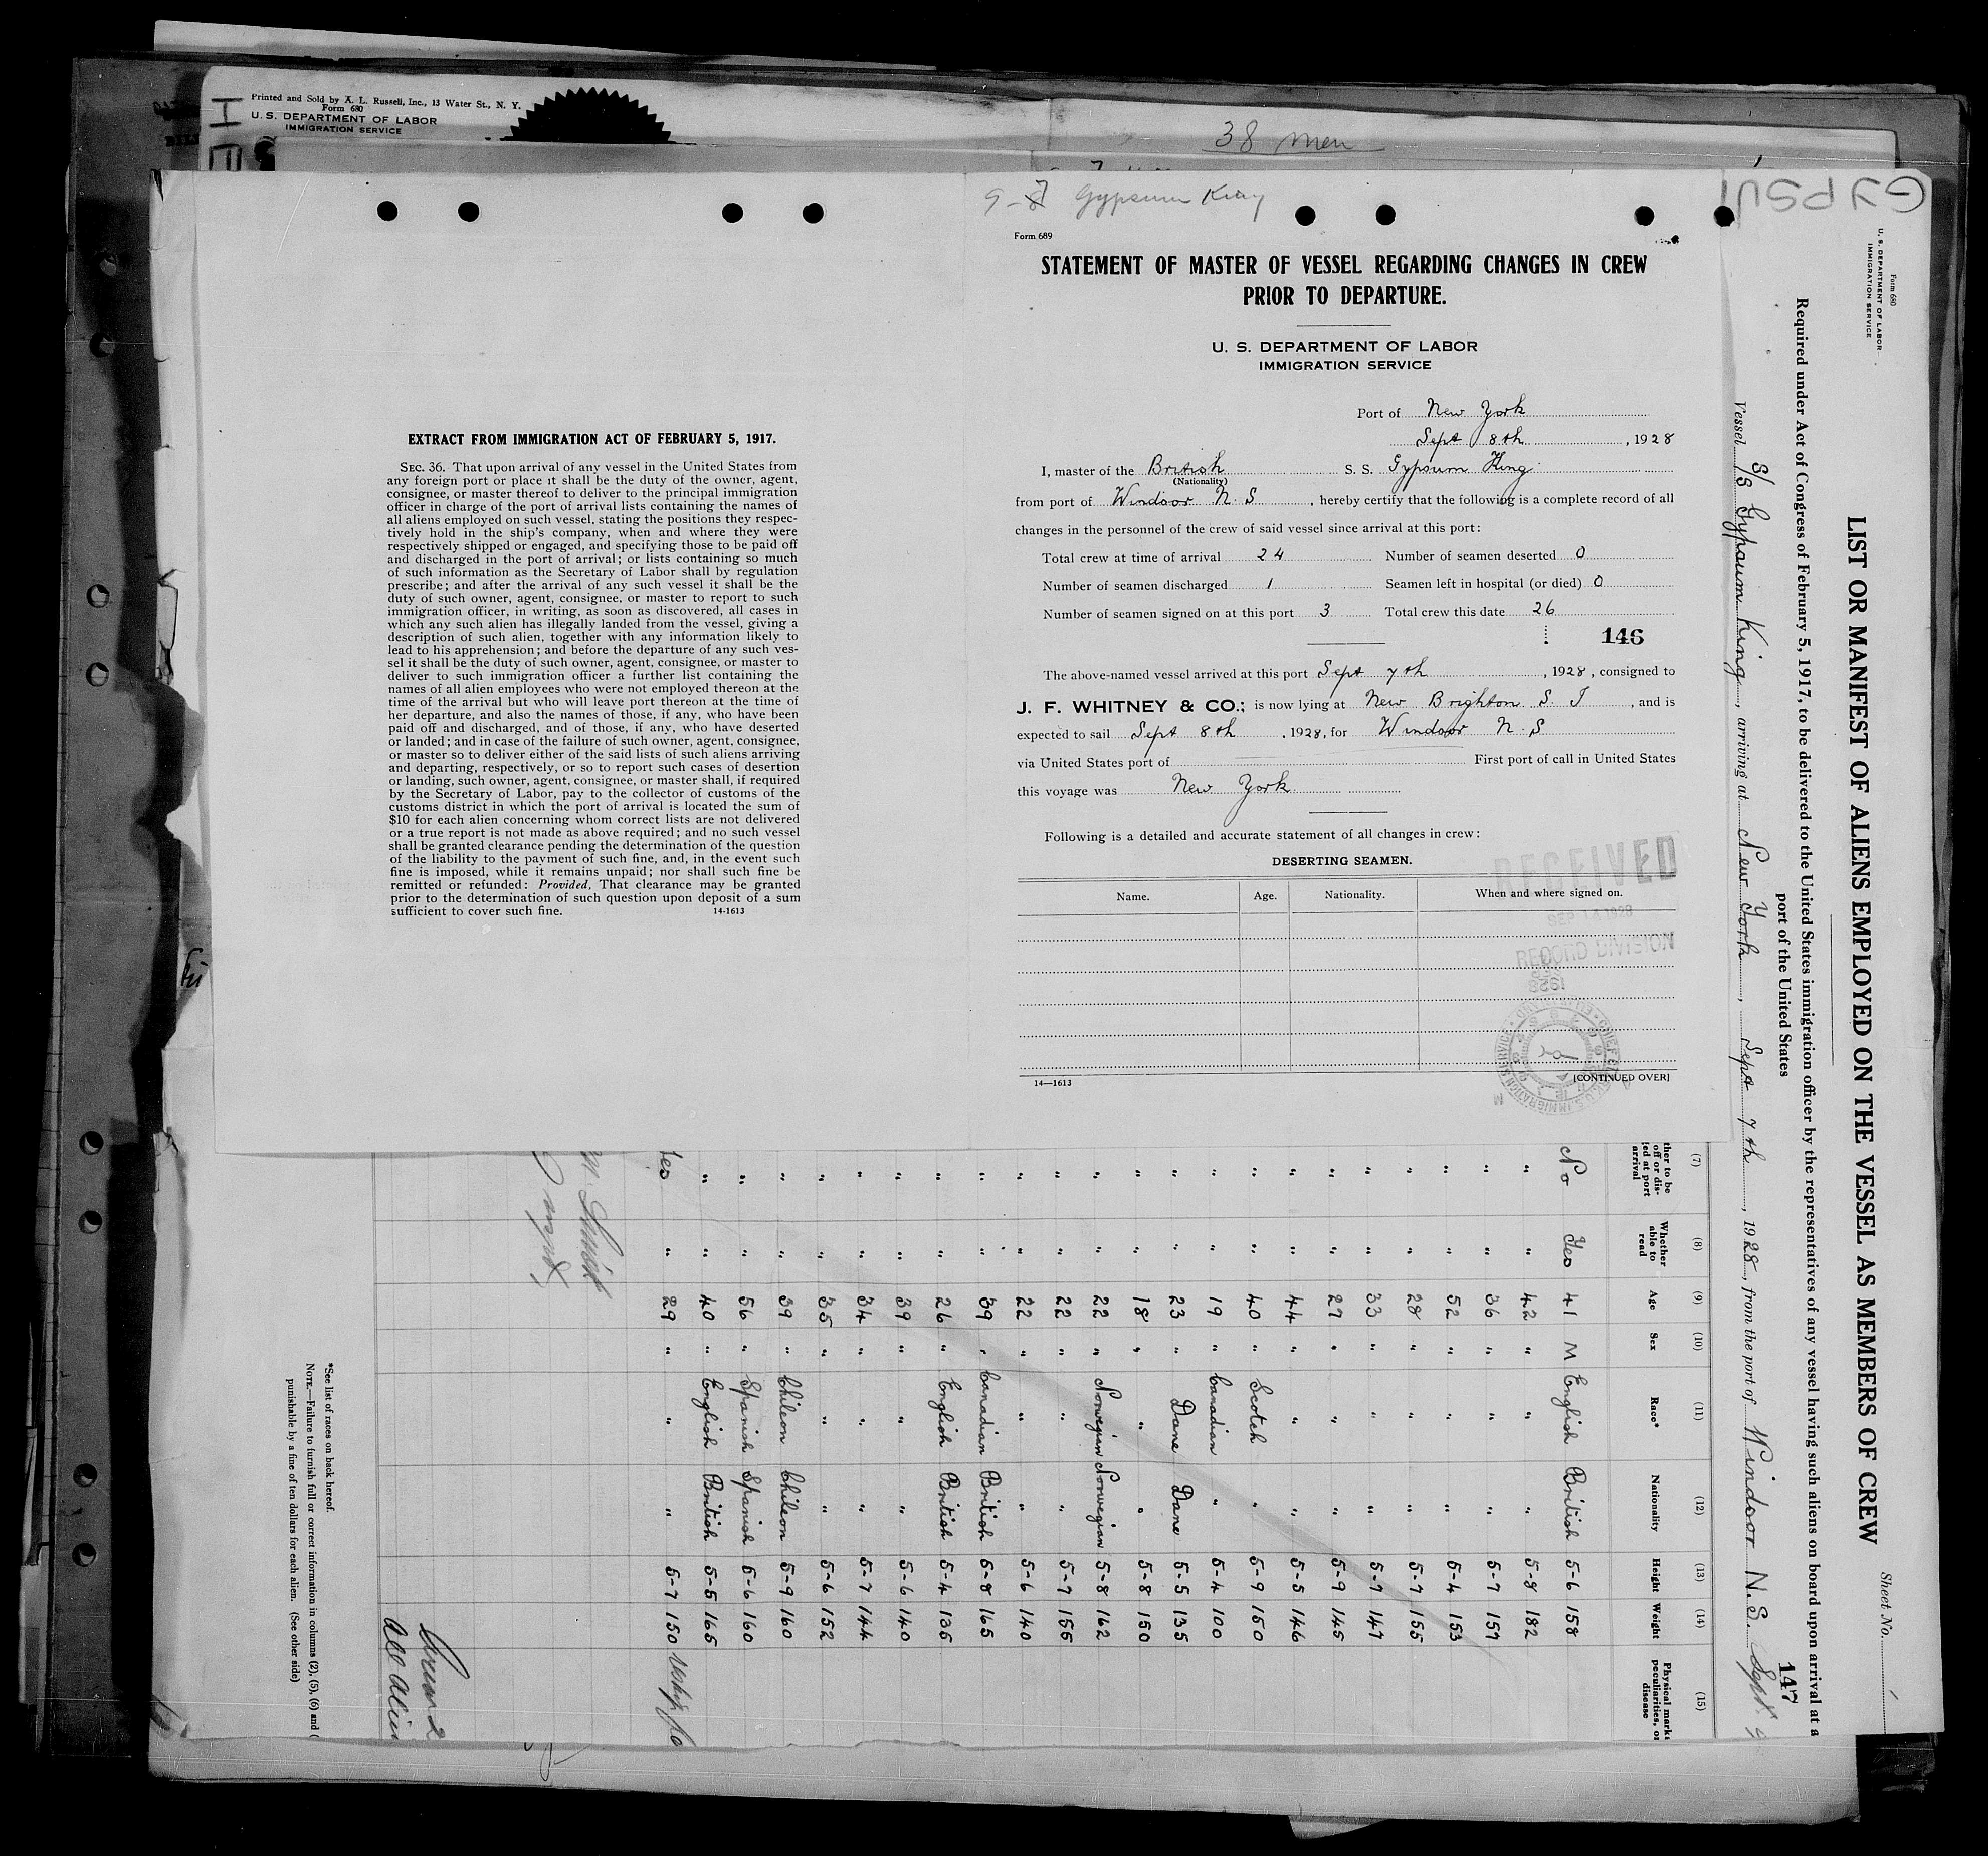 Printed and Sold by A. L. Russell, Inc., 13 Water St., N. Y.
Form 680
U. S. DEPARTMENT OF LABOR
IMMIGRATION SERVICE
38 men
EXTRACT FROM IMMIGRATION ACT OF FEBRUARY 5, 1917.
SEC. 36. That upon arrival of any vessel in the United States from
any foreign port or place it shall be the duty of the owner, agent,
consignee, or master thereof to deliver to the principal immigration
officer in charge of the port of arrival lists containing the names of
all aliens employed on such vessel, stating the positions they respec-
tively hold in the ship's company, when and where they were
respectively shipped or engaged, and specifying those to be paid off
and discharged in the port of arrival; or lists containing so much
of such information as the Secretary of Labor shall by regulation
prescribe; and after the arrival of any such vessel it shall be the
duty of such owner, agent, consignee, or master to report to such
immigration officer, in writing, as soon as discovered, all cases in
which any such alien has illegally landed from the vessel, giving a
description of such alien, together with any information likely to
lead to his apprehension; and before the departure of any such ves-
sel it shall be the duty of such owner, agent, consignee, or master to
deliver to such immigration officer a further list containing the
names of all alien employees who were not employed thereon at the
time of the arrival but who will leave port thereon at the time of
her departure, and also the names of those, if any, who have been
paid off and discharged, and of those, if any, who have deserted
or landed; and in case of the failure of such owner, agent, consignee,
or master so to deliver either of the said lists of such aliens arriving
and departing, respectively, or so to report such cases of desertion
or landing, such owner, agent, consignee, or master shall, if required
by the Secretary of Labor, pay to the collector of customs of the
customs district in which the port of arrival is located the sum of
$10 for each alien concerning whom correct lists are not delivered
or a true report is not made as above required; and no such vessel
shall be granted clearance pending the determination of the question
of the liability to the payment of such fine, and, in the event such
fine is imposed, while it remains unpaid; nor shall such fine be
remitted or refunded: Provided, That clearance may be granted
prior to the determination of such question upon deposit of a sum
sufficient to cover such fine. 14-1613
Gypsum King
Form 689
STATEMENT OF MASTER OF VESSEL REGARDING CHANGES IN CREW
PRIOR TO DEPARTURE.
U. S. DEPARTMENT OF LABOR
IMMIGRATION SERVICE
Port of New York
Sept 8th, 1928
I, master of the British S. S. Gypsum King
(Nationality)
from port of Windsor N. S, hereby certify that the following is a complete record of all
changes in the personnel of the crew of said vessel since arrival at this port:
Total crew at time of arrival 24 Number of seamen deserted 0
Number of seamen discharged 1 Seamen left in hospital (or died) 0
Number of seamen signed on at this port 3 Total crew this date 26
146
The above-named vessel arrived at this port Sept 7th, 1928, consigned to
J. F. WHITNEY & CO.; is now lying at New Brighton S. I, and is
expected to sail Sept 8th, 1928, for Windsor N. S
via United States port of First port of call in United States
this voyage was New York
Following is a detailed and accurate statement of all changes in crew:
DESERTING SEAMEN.
Name. Age. Nationality. When and where signed on.
RECEIVED
SEP 14 1928
RECORD DIVISION
14—1613 [CONTINUED OVER]
GYPSU
Form 680
U. S. DEPARTMENT OF LABOR
IMMIGRATION SERVICE
Sheet No.
LIST OR MANIFEST OF ALIENS EMPLOYED ON THE VESSEL AS MEMBERS OF CREW
Required under Act of Congress of February 5, 1917, to be delivered to the United States immigration officer by the representatives of any vessel having such aliens on board upon arrival at a
port of the United States
147
Vessel S/S Gypsum King, arriving at New York, Sept 7th, 1928, from the port of Windsor N.S.
(7) (8) (9) (10) (11) (12) (13) (14) (15)
ther to be off or dis- ed at port arrival Whether able to read Age Sex Race* Nationality Height Weight Physical marks peculiarities, or disease
No Yes 41 M English British 5-6 158
" " 42 " " " 5-8 182
" " 36 " " " 5-7 157
" " 52 " " " 5-4 153
" " 28 " " " 5-7 155
" " 33 " " " 5-7 147
" " 27 " " " 5-9 145
" " 44 " " " 5-5 146
" " 40 " Scotch " 5-9 150
" " 19 " Canadian " 5-4 100
" " 23 " Dane Dane 5-5 135
" " 18 " " " 5-8 150
" " 22 " Norwegian Norwegian 5-8 162
" " 22 " " " 5-7 155
" " 22 " " " 5-6 140
" " 39 " Canadian British 5-8 165
" " 26 " English British 5-4 135
" " 39 " " " 5-6 140
" " 34 " " " 5-7 144
" " 35 " " " 5-6 152
" " 39 " Chileon Chileon 5-9 160
" " 56 " Spanish Spanish 5-6 160
" " 40 " English British 5-5 165
Yes " 29 " " " 5-7 150
*See list of races on back hereof.
NOTE.—Failure to furnish full or correct information in columns (2), (5), (6) and (
punishable by a fine of ten dollars for each alien. (See other side)